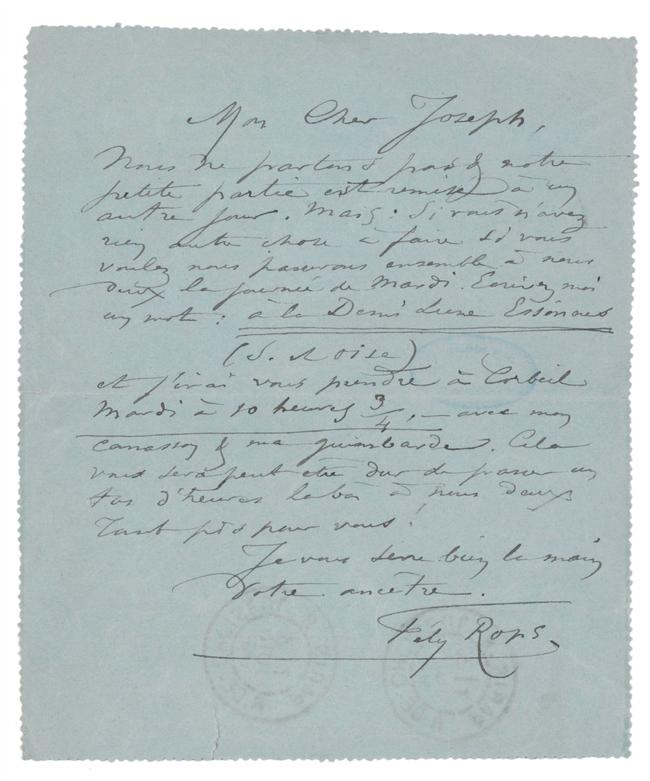 Mon Cher Joseph,
Nous ne partons pas & notre
petite partie est remise à un
autre jour. Mais : Si vous n'avez
rien autre chose à faire si vous
voulez nous passerons ensemble à nous
deux la journée de Mardi. Ecrivez moi
un mot : à la Demi Lune Essonnes
(S. et Oise)
et j'irai vous prendre à Corbeil
Mardi à 10 heures 3/4, – avec mon
canasson & ma guimbarde. Cela
vous sera peut etre dur de passer un
tas d'heures là bas à nous deux
Tant pis pour vous !
Je vous serre bien la main
Votre ancetre.
Fély Rops.